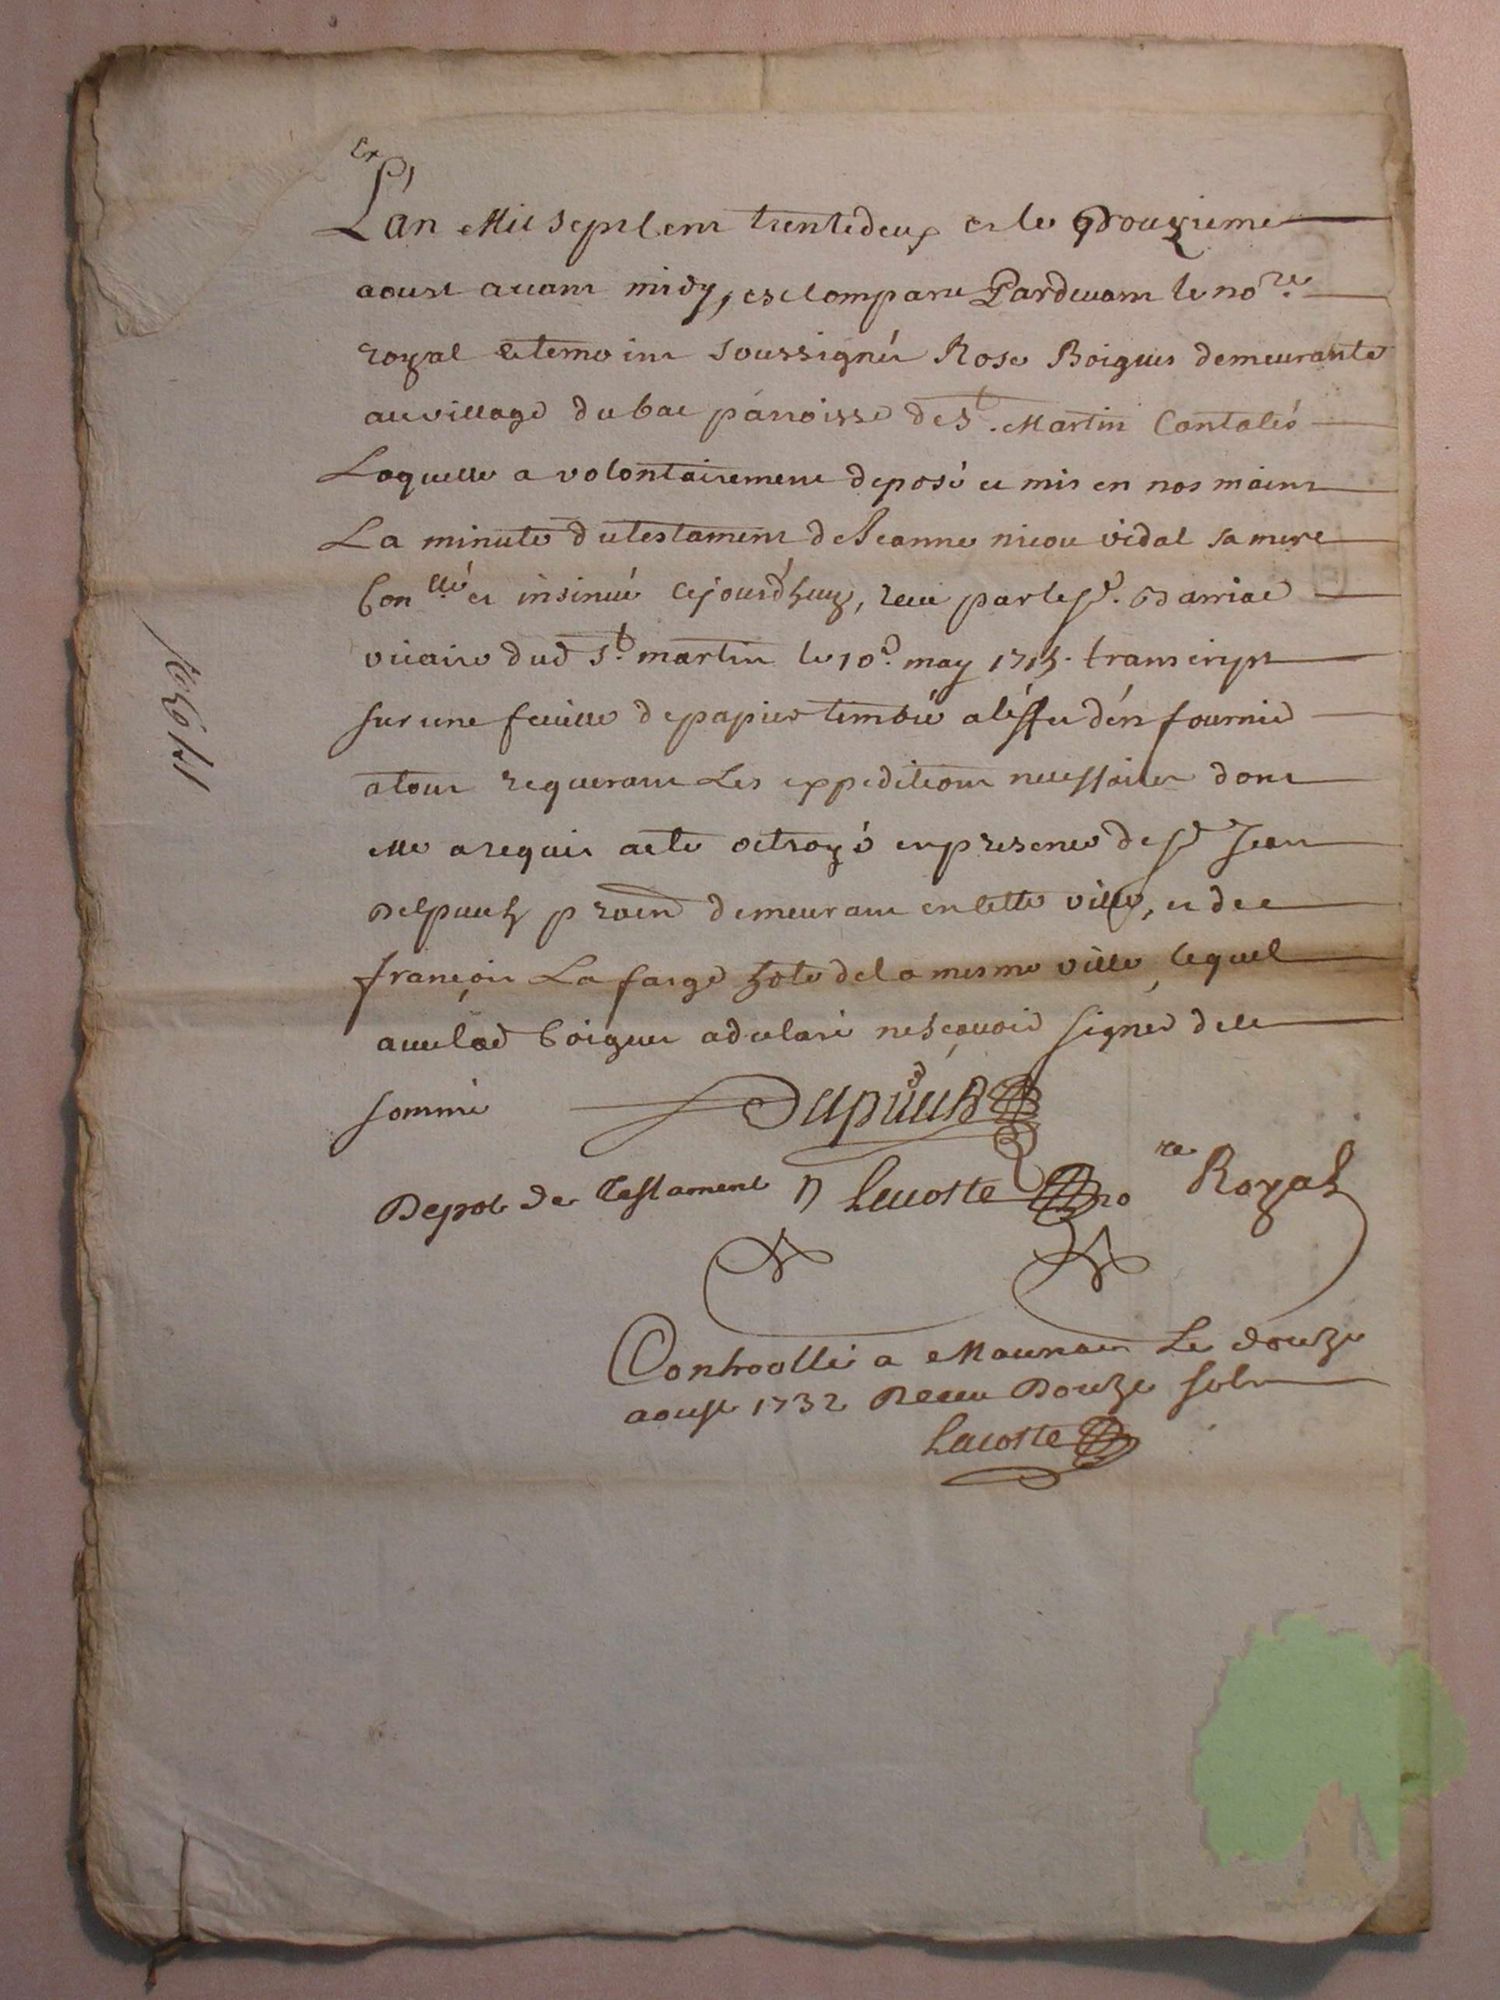 L'an Mil sept Cent trente deux et le Douzieme
aoust avant midy, est Comparu Pardevant le no.re
royal et temoins soussignés Rose Boigues demeurante
au village du bac parroisse de St. Martin Cantalés
Laquelle a volontairement deposé et mis en nos mains
La minute du testament de Jeanne nicou vidal sa mere
Con.llé et insinué Cejourd'huy, receu par le Sr. Darriac
vicaire dud St. martin le 10e. may 1715. transcript
sur une feuille de papier timbré a l'effet d'en fournir
a tous requerant Les expeditions necessaires dont
elle a requis acte octroyé en presence de Sr Jean
Delpuech demeurant en Cette ville, et de
françois Lafarge hote de la mesme ville, lequel
avec lad boigues a declaré ne sçavoir signer de ce
sommé
Delpuech
Depot de Testament
Lacoste no re Royal
Controllé a Mauriac Le douze
aoust 1732 Receu Douze sols
Lacoste